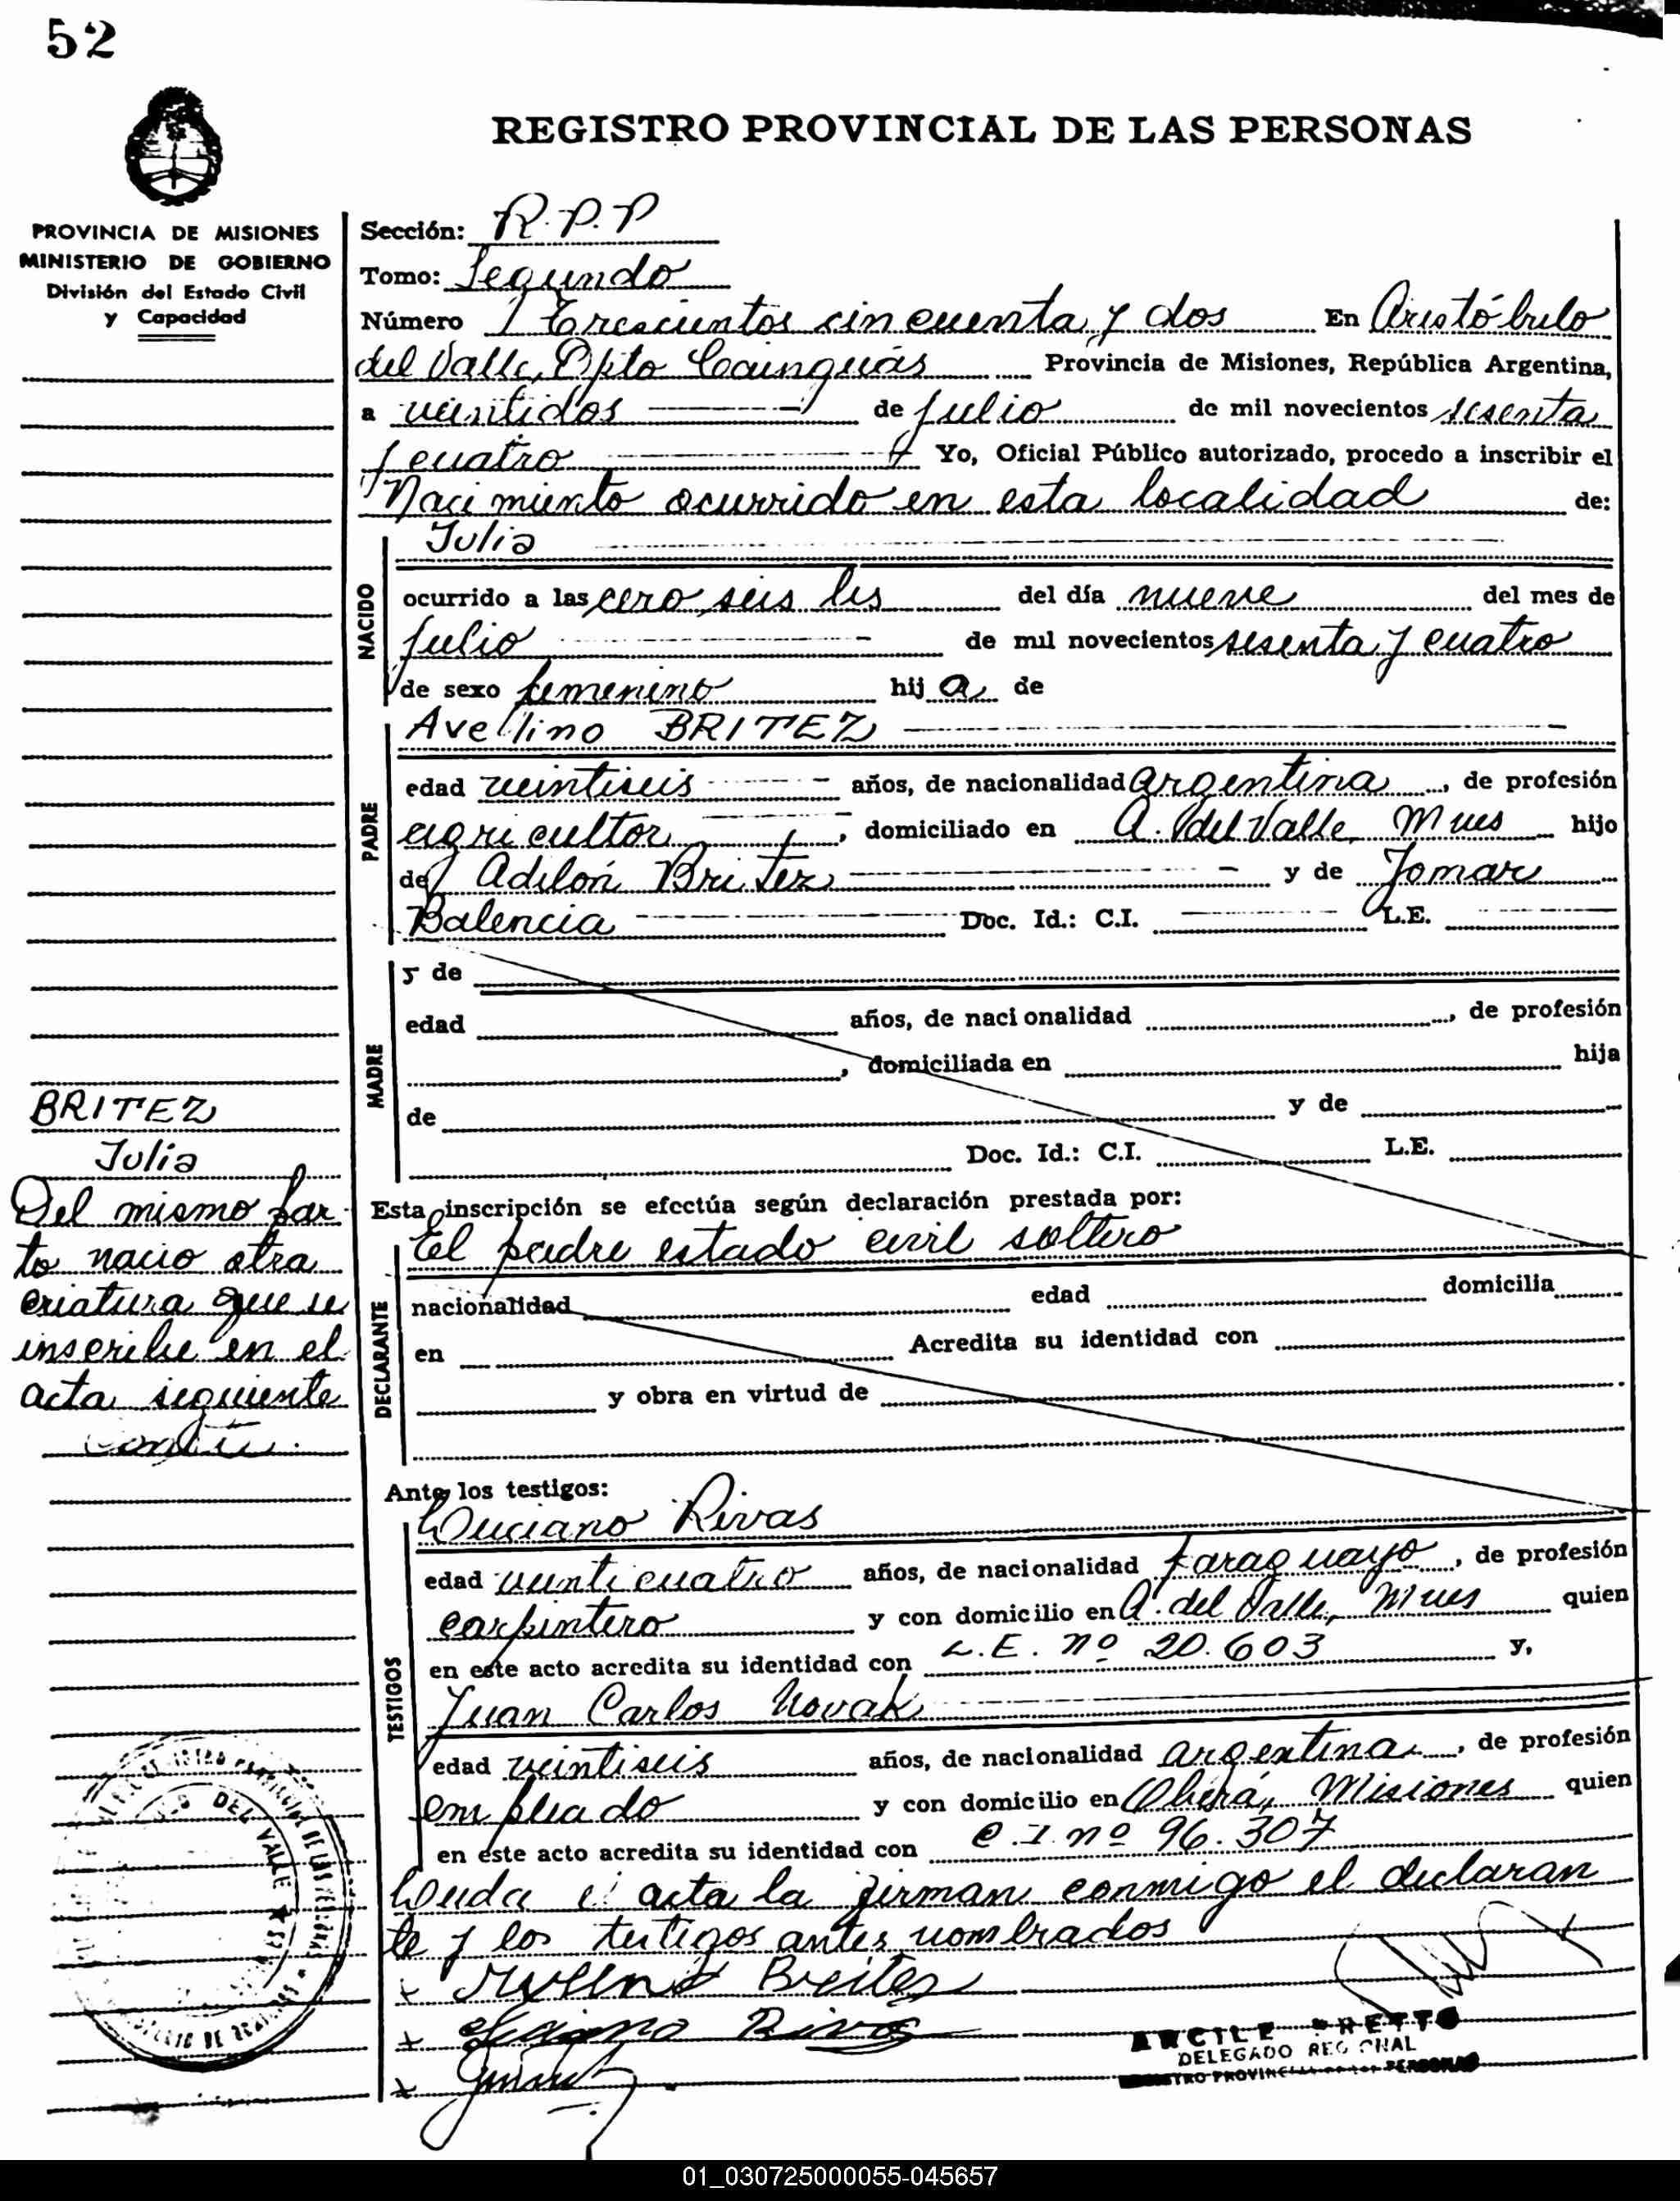 52
REGISTRO PROVINCIAL DE LAS PERSONAS
PROVINCIA DE MISIONES
MINISTERIO DE GOBIERNO
División del Estado Civil
y Capacidad
Sección: R.P.P
Tomo: Segundo
Número Trescientos cincuenta y dos En Aristóbulo
del Valle, Dpto Cainguás Provincia de Misiones, República Argentina,
a veintidos de julio de mil novecientos sesenta
y cuatro Yo, Oficial Público autorizado, procedo a inscribir el
Nacimiento ocurrido en esta localidad de:
NACIDO
Julia
ocurrido a las cero seis hs del día nueve del mes de
julio de mil novecientos sesenta y cuatro
de sexo femenino hija de
PADRE
Avellino BRITEZ
edad veintiseis años, de nacionalidad argentina, de profesión
agricultor, domiciliado en A. del Valle, Mnes hijo
de Adilón Britez y de Jomar
Balencia Doc. Id.: C.I. L.E.
MADRE
y de
edad años, de nacionalidad , de profesión
, domiciliada en hija
de y de
Doc. Id.: C.I. L.E.
BRITEZ
Julia
Del mismo par
to nacio otra
criatura que se
inscribe en el
acta siguiente
Esta inscripción se efectúa según declaración prestada por:
DECLARANTE
El padre estado civil soltero
nacionalidad edad domicilia
en Acredita su identidad con
y obra en virtud de
Ante los testigos:
TESTIGOS
Luciano Rivas
edad veinticuatro años, de nacionalidad paraguayo, de profesión
carpintero y con domicilio en A. del Valle, Mnes quien
en este acto acredita su identidad con L.E. nº 20.603 y,
Juan Carlos Novak
edad veintiseis años, de nacionalidad argentina, de profesión
empleado y con domicilio en Oberá, Misiones quien
en este acto acredita su identidad con C.I. nº 96.307
Leida el acta la firman conmigo el declaran
te y los testigos antes nombrados
x Britez
x Rivas
x
DEL VALLE
DELEGADO REGIONAL
01_030725000055-045657